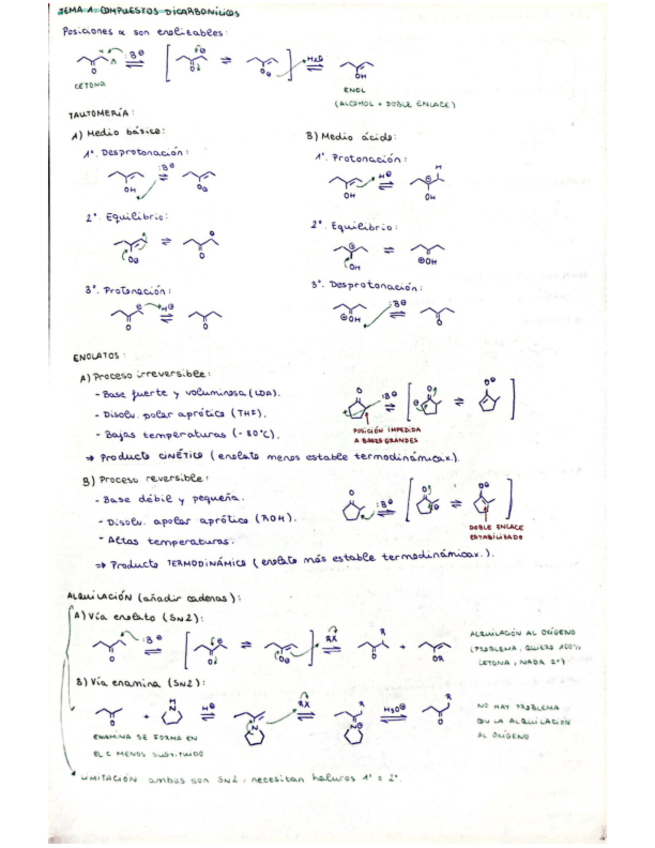 TEMA 1. COMPUESTOS DICARBONÍLICOS
Posiciones α son enolizables:
α :B⊖ H₂O
CETONA
ENOL
(ALCOHOL + DOBLE ENLACE)
TAUTOMERÍA:
A) Medio básico:
1º. Desprotonación:
:B⊖
OH
2º. Equilibrio:
3º. Protonación:
H⊕
B) Medio ácido:
1º. Protonación:
H⊕
H
OH OH
2º. Equilibrio:
OH ⊕OH
3º. Desprotonación:
:B⊖
⊕OH
ENOLATOS:
A) Proceso irreversible:
- Base fuerte y voluminosa (LDA).
- Disolv. polar aprótico (THF).
- Bajas temperaturas (-80ºC).
:B⊖
POSICIÓN IMPEDIDA
A BASES GRANDES
⇒ Producto CINÉTICO (enolato menos estable termodinámicax.).
B) Proceso reversible:
- Base débil y pequeña.
- Disolv. apolar aprótico (ROH).
- Altas temperaturas.
:B⊖
DOBLE ENLACE
ESTABILIZADO
⇒ Producto TERMODINÁMICO (enolato más estable termodinámicax.).
ALQUILACIÓN (añadir cadenas):
A) Vía enolato (SN2):
:B⊖ RX R + OR
ALQUILACIÓN AL OXÍGENO
(PROBLEMA, QUIERO 100%
CETONA, NADA 2º)
B) Vía enamina (SN2):
+ H N H⊕ N RX R N⊕ H₃O⊕ R
ENAMINA SE FORMA EN
EL C MENOS SUSTITUIDO
NO HAY PROBLEMA
CON LA ALQUILACIÓN
AL OXÍGENO
LIMITACIÓN ambas son SN2, necesitan haluros 1º o 2º.